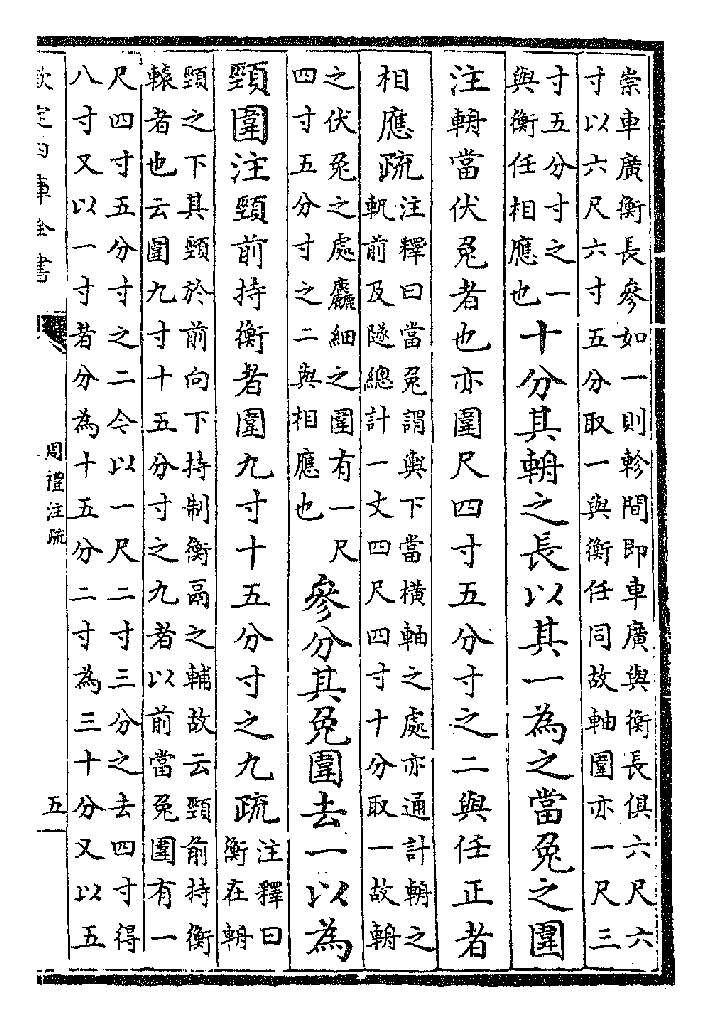 崇車廣衡長參如一則軫間即車廣與衡長俱六尺六
寸以六尺六寸五分取一與衡任同故軸圍亦一尺三
寸五分寸之一
與衡任相應也
十分其輈之長以其一為之當兔之圍
注輈當伏兔者也亦圍尺四寸五分寸之二與任正者
相應疏
注釋曰當兔謂輿下當橫軸之處亦通計輈之
軓前及隧總計一丈四尺四寸十分取一故輈
之伏兔之處麤細之圍有一尺
四寸五分寸之二與相應也
參分其兔圍去一以為
頸圍注頸前持衡者圍九寸十五分寸之九疏
注釋曰
衡在輈
頸之下其頸於前向下持制衡鬲之輔故云頸前持衡
轅者也云圍九寸十五分寸之九者以前當兔圍有一
尺四寸五分寸之二今以一尺二寸三分之去四寸得
八寸又以一寸者分為十五分二寸為三十分又以五
欽定四庫全書
周禮注疏
五